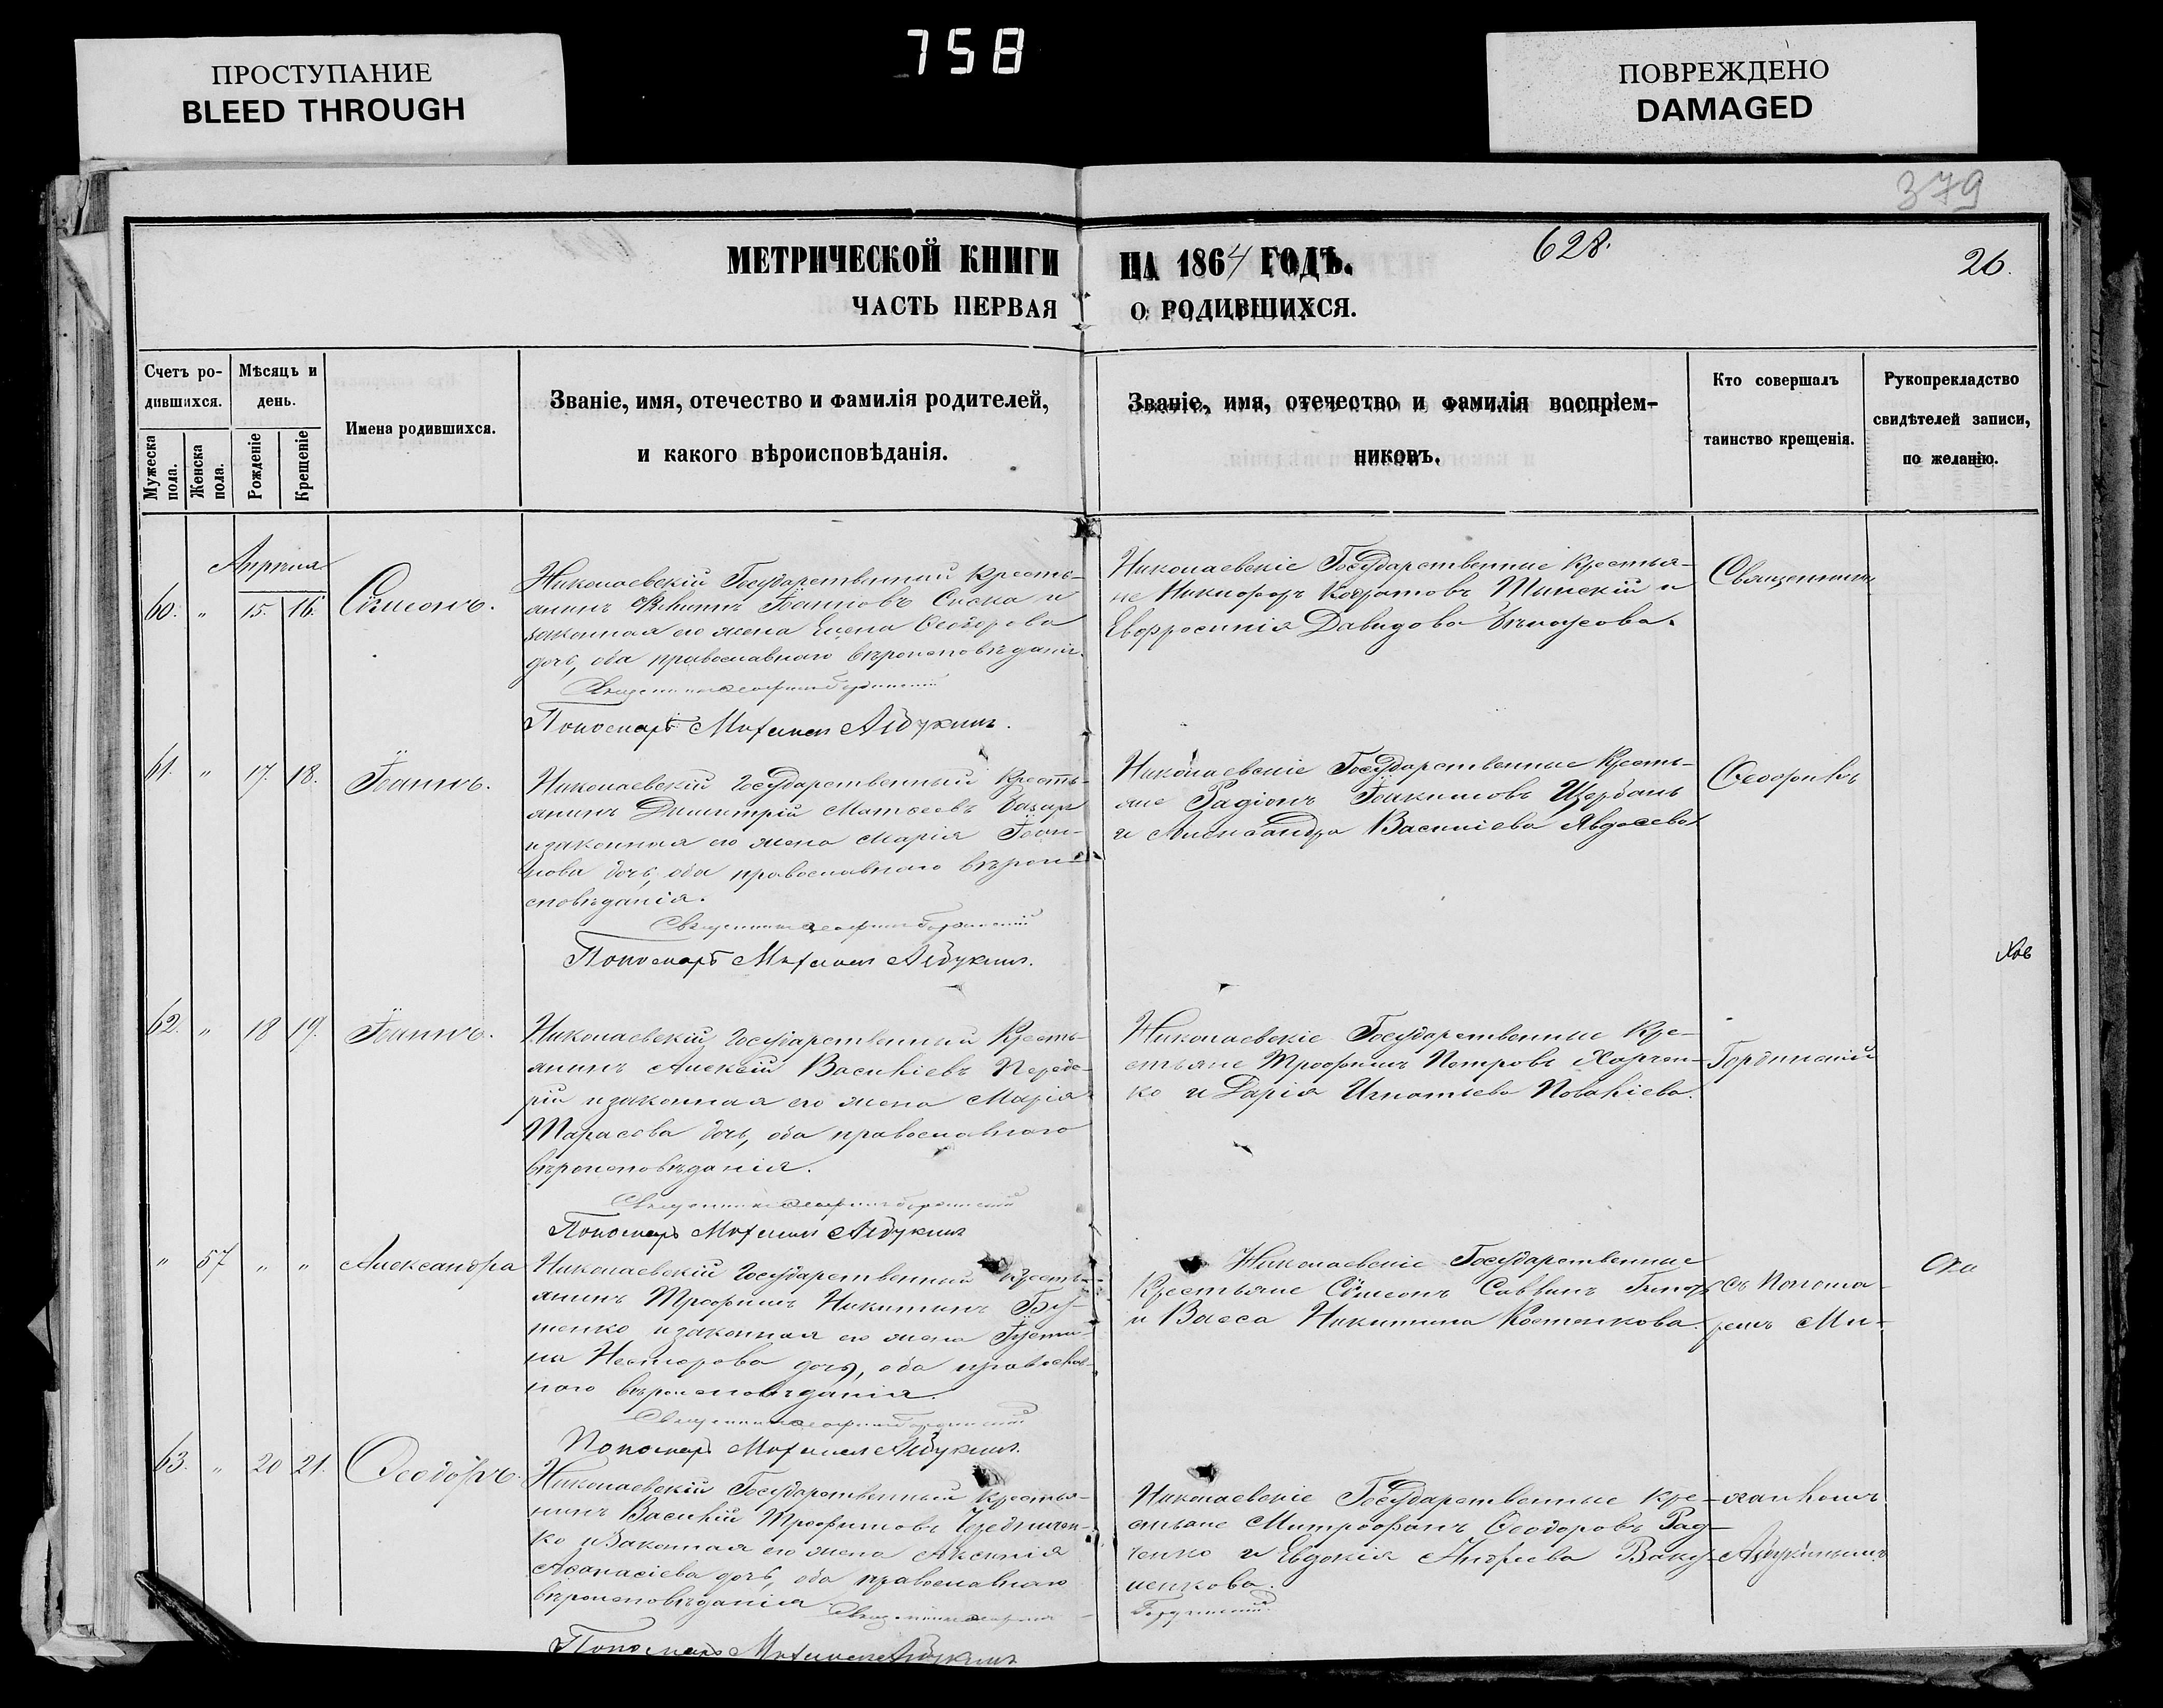 ПРОСТУПАНИЕ
BLEED THROUGH
758
ПОВРЕЖДЕНО
DAMAGED
379
МЕТРИЧЕСКОЙ КНИГИ НА 1864 ГОДЪ.
628.
26.
ЧАСТЬ ПЕРВАЯ О РОДИВШИХСЯ.
Счетъ ро-
дившихся.
Мужеска пола.
Женска пола.
Мѣсяць и
день.
Рожденіе
Крещеніе
Имена родившихся.
Званіе, имя, отечество и фамилія родителей,
и какого вѣроисповѣданія.
Званіе, имя, отечество и фамилія воспріем-
никовъ.
Кто совершалъ
таинство крещенія.
Рукопрекладство
свидѣтелей записи,
по желанію.
Апрѣля
60. " 15. 16. Сѵмеонъ.
Николаевскій Государственный Кресть-
янинъ Іоанновъ и
законная его жена Елена Ѳеодорова
дочь, оба православнаго вѣроисповѣданія.
Пономарь Михаилъ Авдукинъ.
Николаевскіе Государственные Крестья-
не Никифоръ Кодратовъ Шинскій и
Евфросинія Давидова
Священникъ
61. " 17. 18. Іоаннъ.
Николаевскій Государственный Кресть-
янинъ Димитрій Матѳеевъ
и законная его жена Марія Іоан-
нова дочь, оба православнаго вѣрои-
сповѣданія.
Пономарь Михаилъ Авдукинъ.
Николаевскіе Государственные Кресть-
яне Радіонъ Іоакимовъ Щербань
и Александра Василіева Авдѣева
Ѳеофилъ
62. " 18 19. Іоаннъ.
Николаевскій Государственный Кресть-
янинъ Алексій Василіевъ Передє-
рій и законная его жена Марія
Тарасова дочь, оба православнаго
вѣроисповѣданія.
Пономарь Михаилъ Авдукинъ
Николаевскіе Государственные Кре-
стьяне Трофимъ Петровъ Харчен-
ко и Дарія Игнатьева
Гординскій
" 57 " " Александра
Николаевскій Государственный Кресть-
янинъ Трофимъ Никитинъ
и законная его жена Іусти-
на Несторова дочь, оба православ-
наго вѣроисповѣданія.
Пономарь Михаилъ Авдукинъ.
Николаевскіе Государственные
Крестьяне Сѵмеонъ Саввинъ
и Васса Никитина Костенкова.
Съ Понома-
ремъ Ми-
63. " 20 21. Ѳеодоръ.
Николаевскій Государственный Крестья-
нинъ Василій Трофимовъ Чередничен-
ко и Законная его жена Аксинія
Аѳанасіева дочь, оба православнаго
вѣроисповѣданія
Пономарь Михаилъ Авдукинъ
Николаевскіе Государственные Кре-
стьяне Митрофанъ Ѳеодоровъ Рад-
ченко и Евдокія Андреева Ваку-
ленкова.
Гординскій
хаиломъ
Авдукинымъ